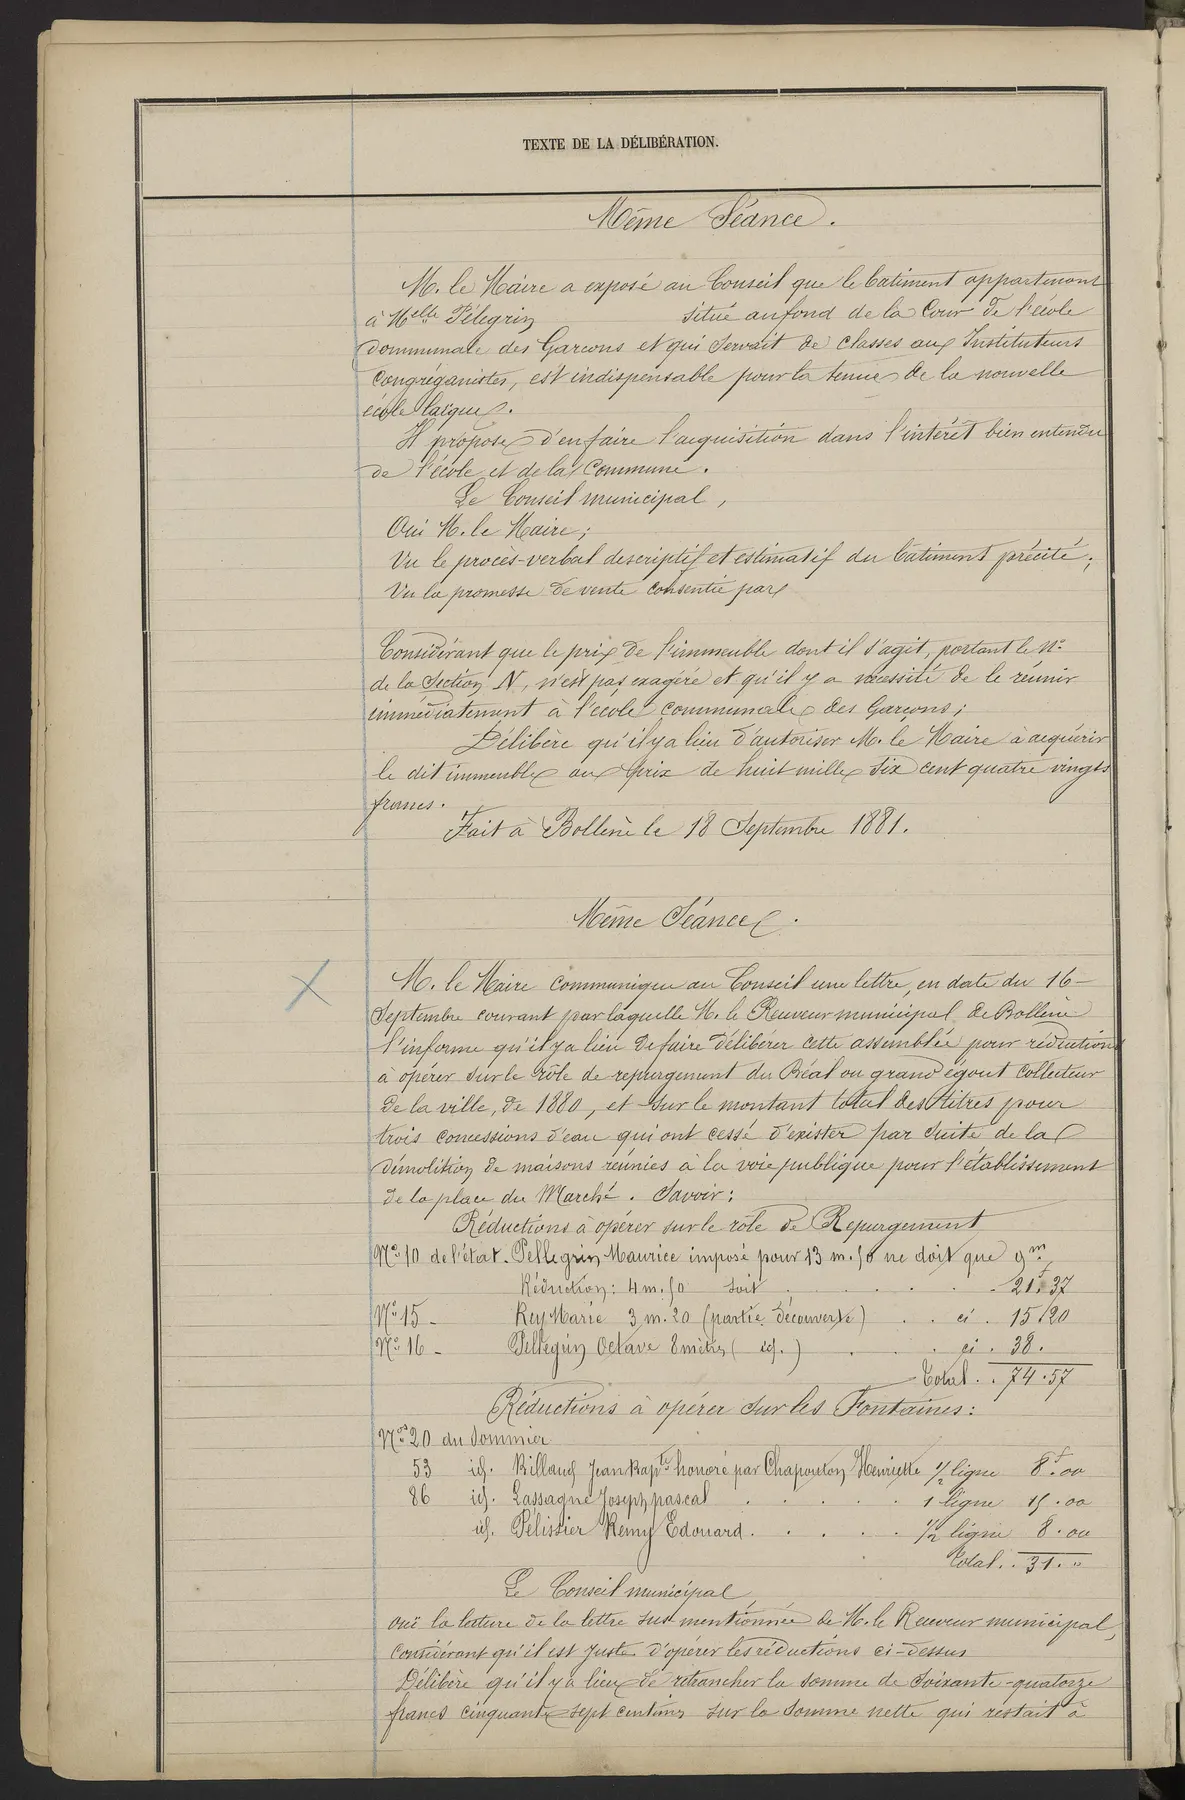 TEXTE DE LA DÉLIBÉRATION.
Même Séance.
M. le Maire a exposé au Conseil que le batiment appartenant
à Melle Pélegrin situé au fond de la Cour de l'école
Communale des Garcons et qui servait de classes aux Instituteurs
Congréganistes, est indispensable pour la tenue de la nouvelle
école laïque.
Il propose d'en faire l'acquisition dans l'intérêt bien entendu
de l'école et de la Commune.
Le Conseil municipal,
Oui M. le Maire;
Vu le procès-verbal descriptif et estimatif du bâtiment précité;
Vu la promesse de vente consentie par
Considérant que le prix de l'immeuble dont il s'agit, portant le No
de la Section N, n'est pas exagéré et qu'il y a nécessité de le réunir
immédiatement à l'école communale des Garçons;
Délibère qu'il y a lieu d'autoriser M. le Maire à acquérir
le dit immeuble au prix de huit mille six cent quatre vingts
francs.
Fait à Bollène le 18 Septembre 1881.
Même Séance.
M. le Maire communique au Conseil une lettre, en date du 16-
Septembre courant par laquelle M. le Receveur municipal de Bollène
l'informe qu'il y a lieu de faire délibérer cette assemblée pour réductions
à opérer sur le rôle de repurgement du Béal ou grand égout Collecteur
de la ville, de 1880, et sur le montant total des titres pour
trois concessions d'eau qui ont cessé d'exister par suite de la
démolition de maisons réunies à la voie publique pour l'établissement
de la place du Marché. Savoir:
Réductions à opérer sur le rôle de Repurgement
No 10 de l'état. Pellegrin Maurice imposé pour 13 m. 50 ne doit que 9m
Réduction: 4 m. 50 soit . . . . . 21f.37
No 15 - Rey Marie 3 m. 20 (partie découverte) . . ci . 15.20
No 16 - Pellegrin Octave 8 mètres (id.) . . . ci . 38.
Total . . 74.57
Réductions à opérer sur les Fontaines:
Nos 20 du Sommier
53 id. Billaud Jean Bapte honoré par Chapouton Henriette 1/2 ligne 8f.00
86 id. Lassagne Joseph pascal . . . . . 1 ligne 15.00
id. Pélissier Remy Edouard . . . . . 1/2 ligne 8.00
Total . . 31."
Le Conseil municipal
ouï la lecture de la lettre sus mentionnée de M. le Receveur municipal,
Considérant qu'il est juste d'opérer les réductions ci-dessus
Délibère qu'il y a lieu de retrancher la somme de soixante-quatorze
francs cinquante sept centimes sur la somme nette qui restait à